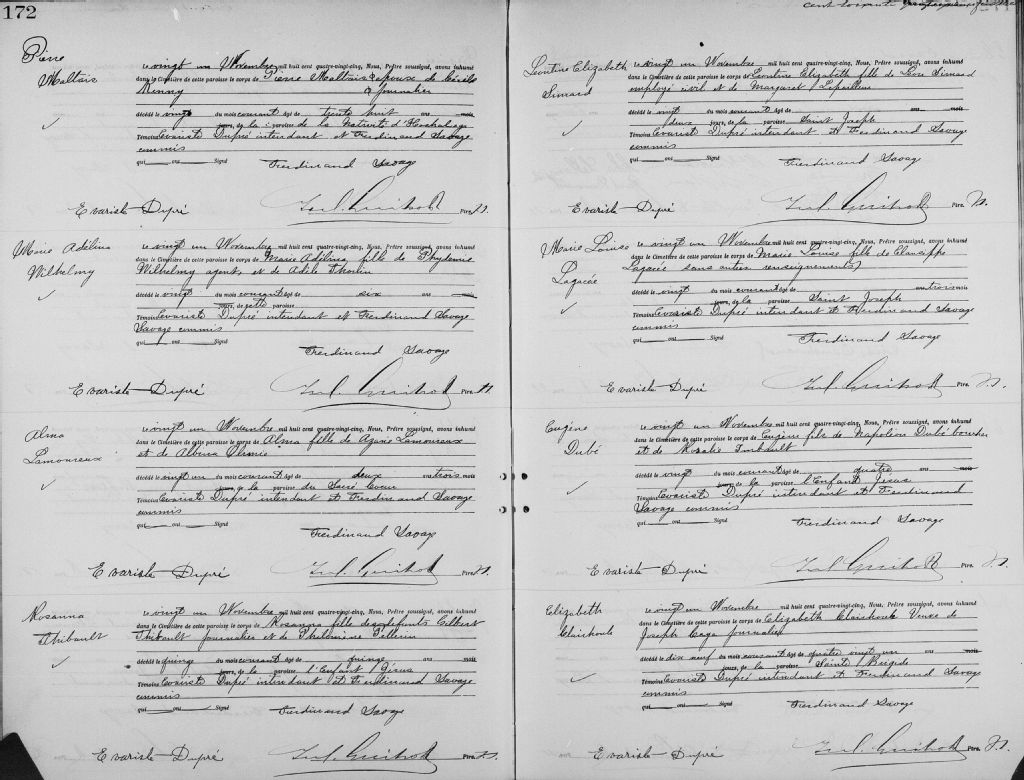 172
cent soixante
Pierre
Maltais
Le vingt un Novembre mil huit cent quatre-vingt-cinq, Nous, Prêtre soussigné, avons inhumé
dans le Cimetière de cette paroisse le corps de Pierre Maltais époux de Cécile
Kenny journalier
décédé le vingt du mois courant âgé de trente huit ans mois
jours, de la paroisse de la Nativité d'Hochelaga
Témoins Evariste Dupré intendant et Ferdinand Savage
commis
qui ont Signé
Ferdinand Savage
Evariste Dupré Ptre.
Marie Adélina
Wilhelmy
Le vingt un Novembre mil huit cent quatre-vingt-cinq, Nous, Prêtre soussigné, avons inhumé
dans le Cimetière de cette paroisse le corps de Marie Adélina, fille de Phydemie
Wilhelmy agent, et de Adèle
décédé le vingt du mois courant âgé de six ans mois
jours, de cette paroisse
Témoins Evariste Dupré intendant et Ferdinand Savage
Savage commis
qui ont Signé
Ferdinand Savage
Evariste Dupré Ptre.
Alma
Lamoureux
Le vingt un Novembre mil huit cent quatre-vingt-cinq, Nous, Prêtre soussigné, avons inhumé
dans le Cimetière de cette paroisse le corps de Alma fille de Azarie Lamoureux
et de Albina
décédé le vingt un du mois courant âgé de deux ans trois mois
jours, de la paroisse du Sacré Coeur
Témoins Evariste Dupré intendant et Ferdinand Savage
commis
qui ont Signé
Ferdinand Savage
Evariste Dupré Ptre.
Rosanna
Thibault
Le vingt un Novembre mil huit cent quatre-vingt-cinq, Nous, Prêtre soussigné, avons inhumé
dans le Cimetière de cette paroisse le corps de Rosanna fille des défunts Gilbert
Thibault journalier et de Philomène Pellerin
décédé le quinze du mois courant âgé de quinze ans mois
jours, de la paroisse l'Enfant Jésus
Témoins Evariste Dupré intendant et Ferdinand Savage
commis
qui ont Signé
Ferdinand Savage
Evariste Dupré Ptre.
Leontine Elizabeth
Simard
Le vingt un Novembre mil huit cent quatre-vingt-cinq, Nous, Prêtre soussigné, avons inhumé
dans le Cimetière de cette paroisse le corps de Leontine Elizabeth fille de Léon Simard
employé civil et de Margaret
décédé le vingt du mois courant âgé de ans mois
deux jours, de la paroisse Saint Joseph
Témoins Evariste Dupré intendant et Ferdinand Savage
commis
qui ont Signé
Ferdinand Savage
Evariste Dupré Ptre.
Marie Louise
Lagacée
Le vingt un Novembre mil huit cent quatre-vingt-cinq, Nous, Prêtre soussigné, avons inhumé
dans le Cimetière de cette paroisse le corps de Marie Louise fille de
Lagacée sans autres renseignements
décédé le vingt du mois courant âgé de ans trois mois
jours, de la paroisse Saint Joseph
Témoins Evariste Dupré intendant et Ferdinand Savage
commis
qui ont Signé
Ferdinand Savage
Evariste Dupré Ptre.
Eugène
Dubé
Le vingt un Novembre mil huit cent quatre-vingt-cinq, Nous, Prêtre soussigné, avons inhumé
dans le Cimetière de cette paroisse le corps de Eugène fils de Napoléon Dubé boucher
et de Rosalie Imbault
décédé le vingt du mois courant âgé de quatre ans mois
jours de la paroisse l'Enfant Jésus
Témoins Evariste Dupré intendant et Ferdinand
Savage commis
qui ont Signé
Ferdinand Savage
Evariste Dupré Ptre.
Elizabeth
Clairhoule
Le vingt un Novembre mil huit cent quatre-vingt-cinq, Nous, Prêtre soussigné, avons inhumé
dans le Cimetière de cette paroisse le corps de Elizabeth Clairhoule Veuve de
Joseph Caya journalier
décédé le dix neuf du mois courant âgé de quatre vingt un ans mois
jours, de la paroisse Saint Brigide
Témoins Evariste Dupré intendant et Ferdinand Savage
commis
qui ont Signé
Ferdinand Savage
Evariste Dupré Ptre.